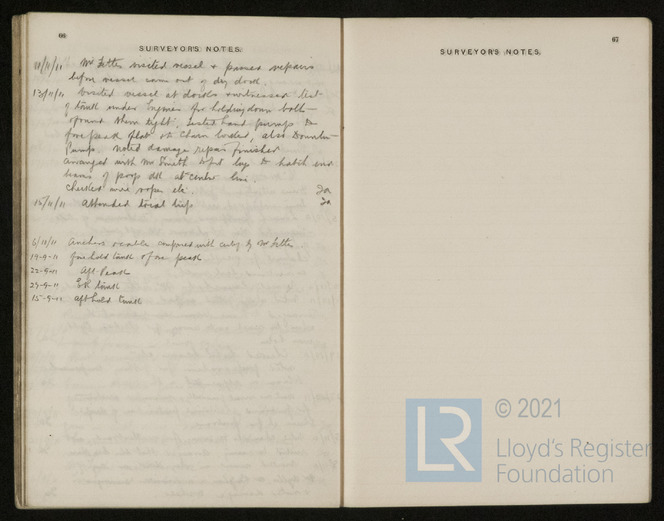 66
SURVEYOR'S NOTES.
11/11/11 Mr Fetter visited vessel & passed repairs
before vessel came out of dry dock.
13/11/11 Visited vessel at docks & witnessed test
of tank under Engines for holding down bolts
found them tight, tested hand pumps to
fore peak flat & chain locker, also Downton
Pump. Noted damage repair finished
arranged with Mr Smith to fit lugs to hatch end
beams of poop dk at center line.
Checked wire ropes etc.
15/11/11 Attended trial trip
6/11/11 Anchors & cables compared with certs by Mr Fetter.
19-9-11 fore hold tank & fore peak
22-9-11 Aft Peak
23-9-11 ER tank
15-9-11 aft hold tank
67
SURVEYOR'S NOTES.
LR
© 2021
Lloyd's Register
Foundation